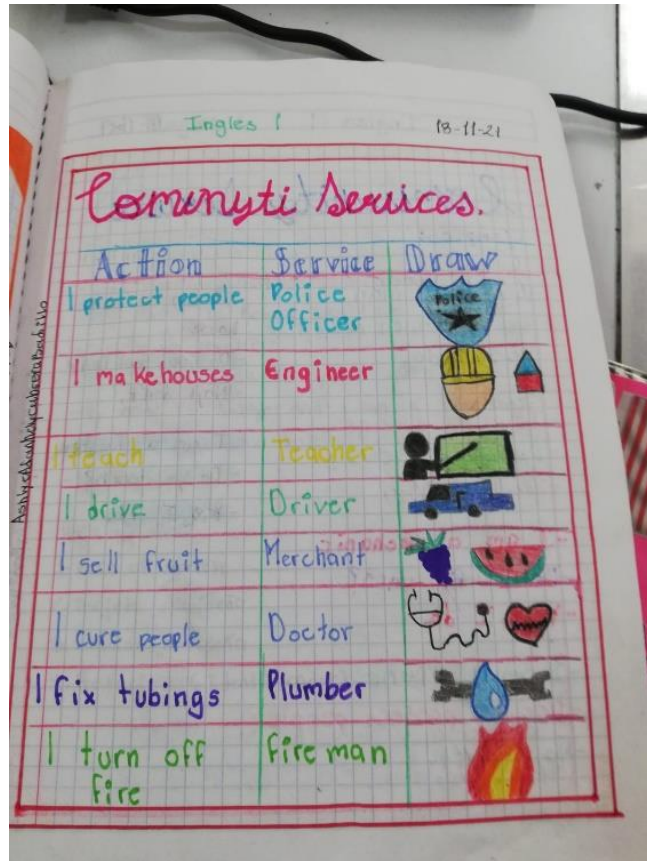 Ingles 1 18-11-21
Comunyti Services.
Action Service Draw
I protect people Police
Officer
Police
I make houses Engineer
I teach Teacher
I drive Driver
I sell fruit Merchant
I cure people Doctor
I fix tubings Plumber
I turn off fire man
fire